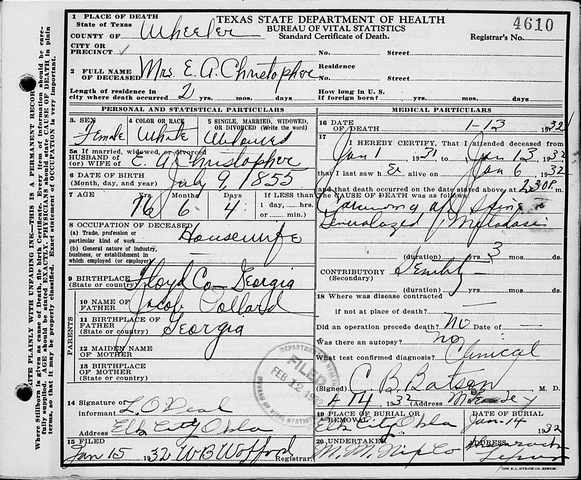 TEXAS STATE DEPARTMENT OF HEALTH
BUREAU OF VITAL STATISTICS
Standard Certificate of Death.
4610
Registrar's No.
1 PLACE OF DEATH
State of Texas
COUNTY OF Wheeler
CITY OR
PRECINCT
No. Street
2 FULL NAME
OF DECEASED Mrs. E. A. Christopher
Residence
No. Street
Length of residence in
city where death occurred 2 yrs. mos. days
How long in U. S.
if foreign born? yrs. mos. days
PERSONAL AND STATISTICAL PARTICULARS
3 SEX Female
4 COLOR OR RACE White
5 SINGLE, MARRIED, WIDOWED,
OR DIVORCED (Write the word)
5a If married, widowed or divorced
HUSBAND OF
(or) WIFE OF E. A. Christopher
6 DATE OF BIRTH
(Month, day, and year) July 9 1855
7 AGE 76 Years 6 Months 4 Days
IF LESS than
1 day, hrs.
or min.
8 OCCUPATION OF DECEASED
(a) Trade, profession or
particular kind of work Housewife
(b) General nature of industry,
business, or establishment in
which employed (or employer)
9 BIRTHPLACE
(State or country) Floyd Co Georgia
PARENTS
10 NAME OF
FATHER Jacob Pollard
11 BIRTHPLACE OF
FATHER
(State or country) Georgia
12 MAIDEN NAME
OF MOTHER
13 BIRTHPLACE
OF MOTHER
(State or country)
14 Signature
informant
Address Elk City Okla
15 FILED
Jan 15 1932 W B Wofford Registrar
MEDICAL PARTICULARS
16 DATE
OF DEATH 1-13 1932
17 I HEREBY CERTIFY, That I attended deceased from
Jan 1 1931 to Jan 13 1932
that I last saw h er alive on Jan 6 1932
and that death occurred on the date stated above at 2:30 P. m.
The CAUSE OF DEATH was as follows:
Carcinoma of Spine
Generalized
(duration) yrs. 3 mos. ds.
CONTRIBUTORY Senility
(Secondary)
(duration) yrs. mos. ds.
18 Where was disease contracted
if not at place of death?
Did an operation precede death? No Date of
Was there an autopsy? no
What test confirmed diagnosis? Clinical
(Signed) C. B. Batson M. D.
14 1932
19 PLACE OF BURIAL OR
REMOVAL Elk City Okla
DATE OF BURIAL
Jan-14 1932
20 UNDERTAKER
ADDRESS Shamrock
Texas
FILED
FEB 12